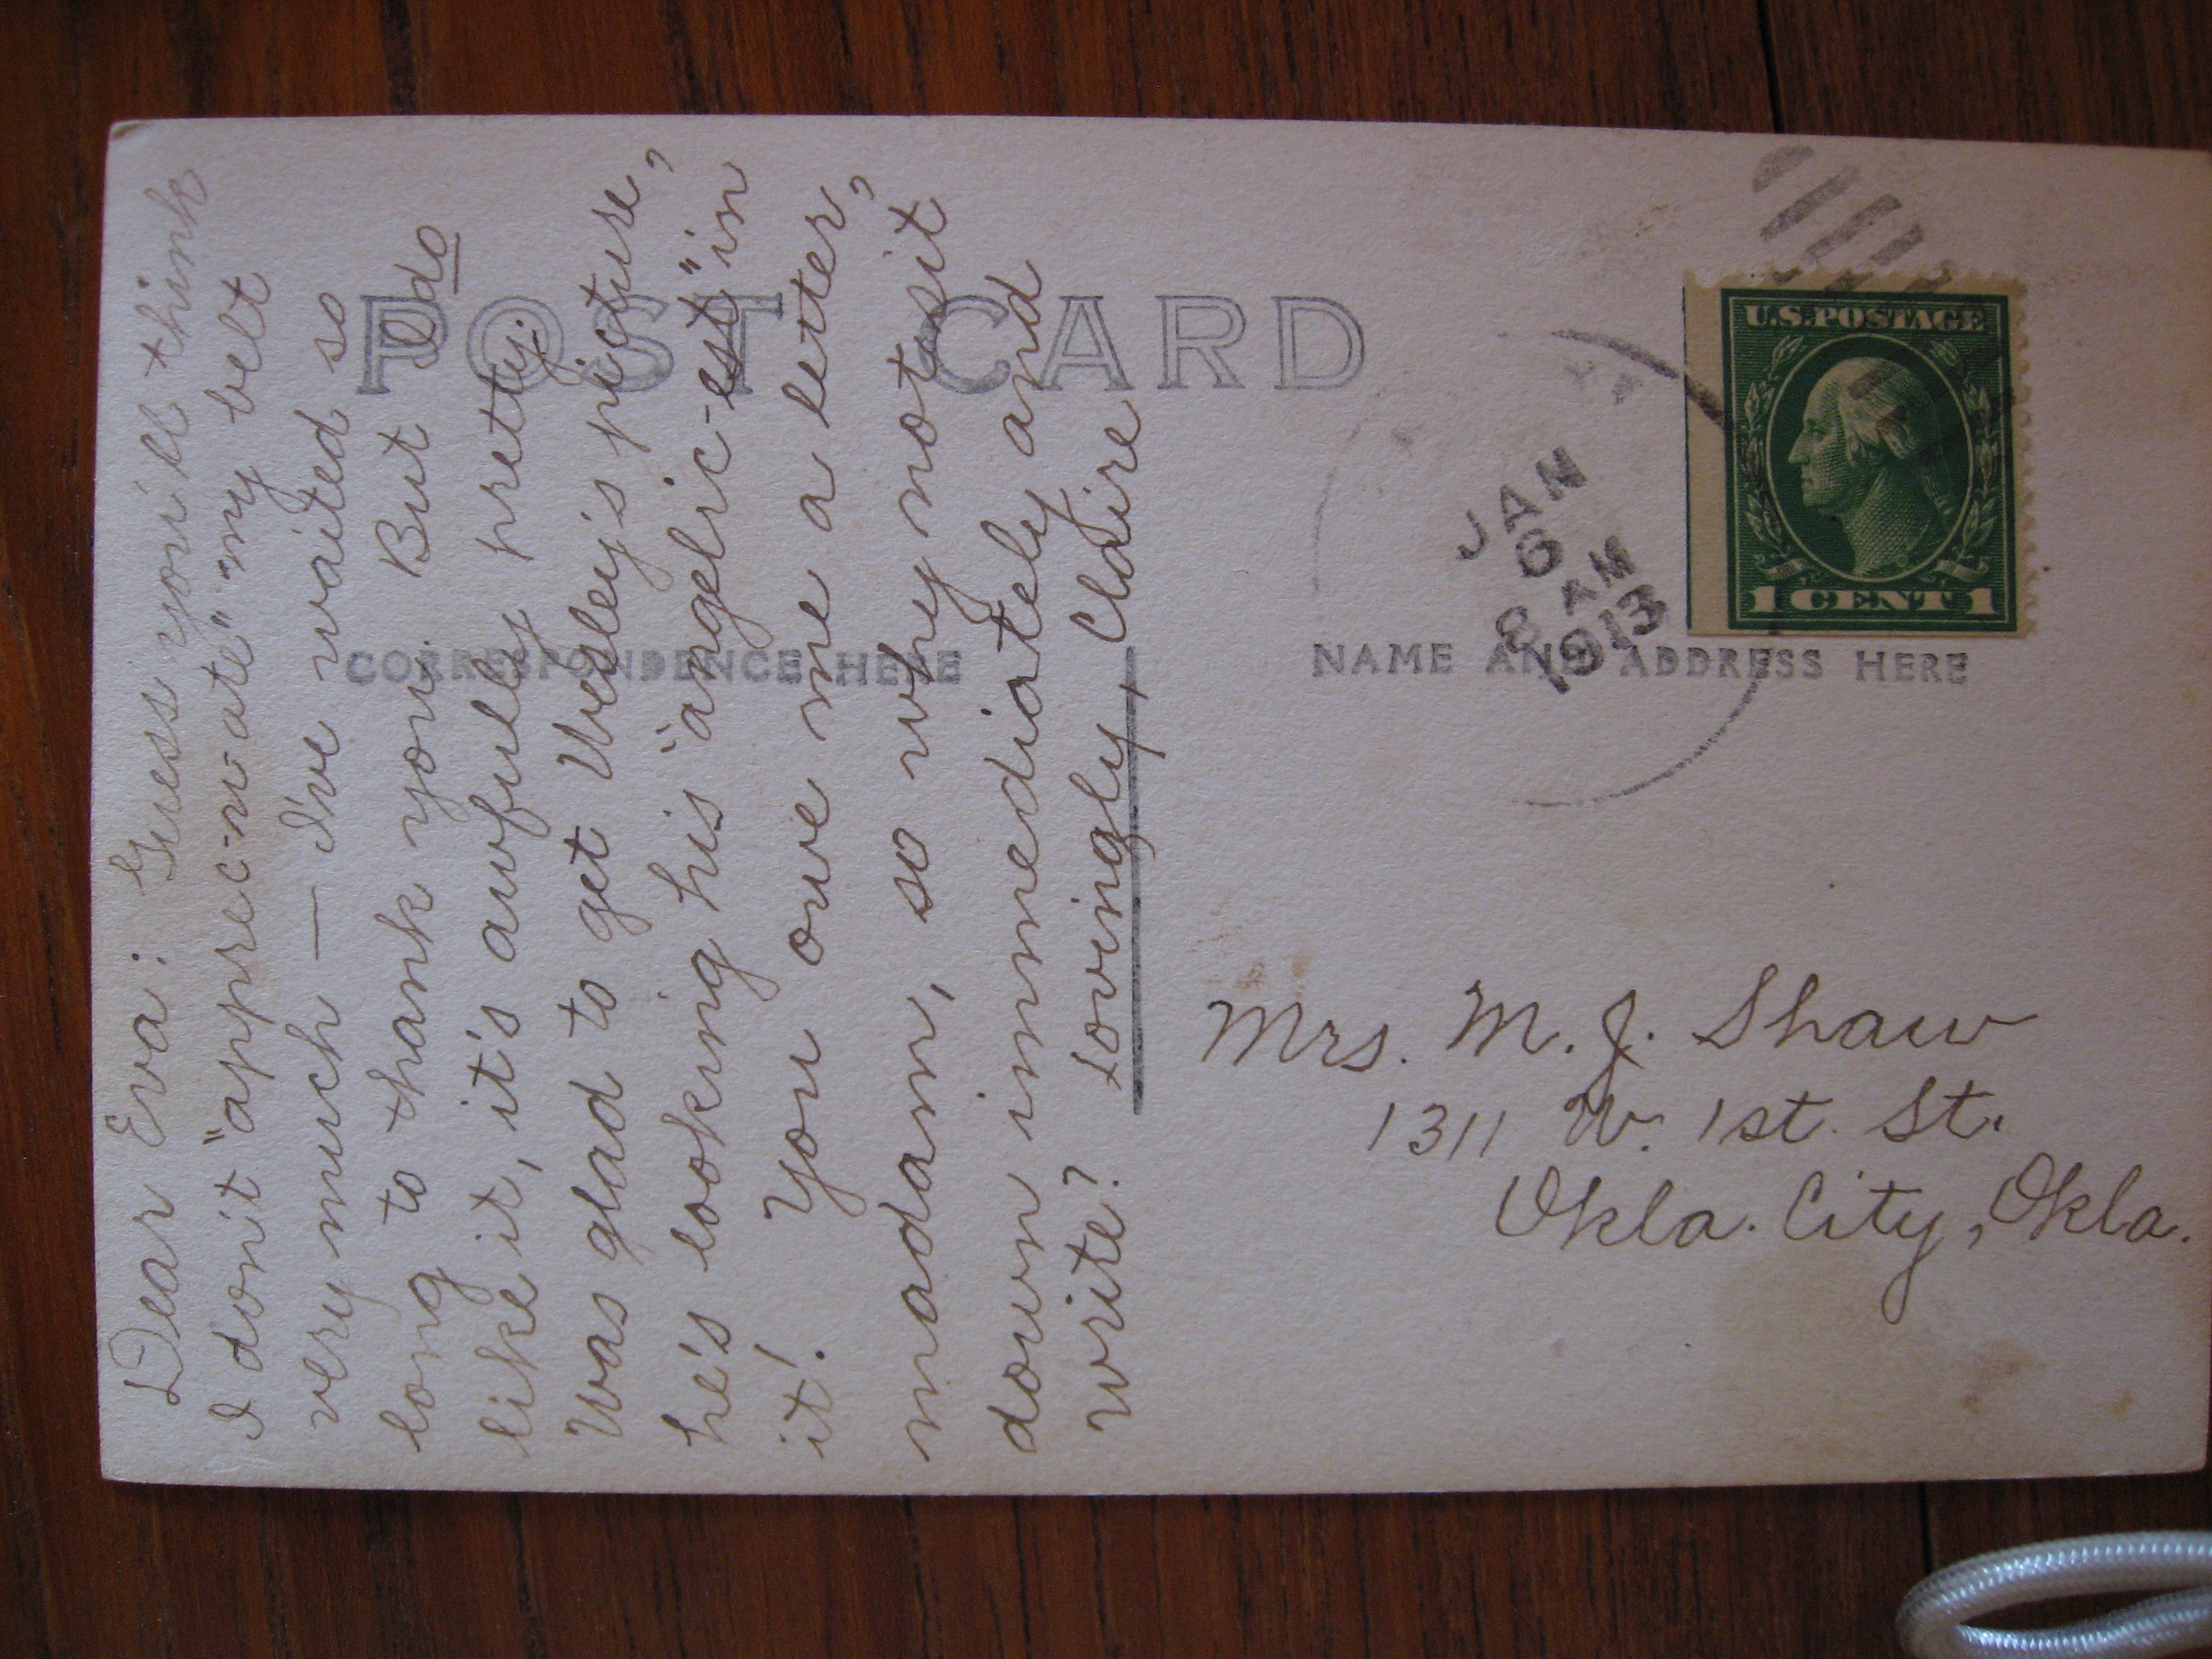 POST CARD
CORRESPONDENCE HERE
NAME AND ADDRESS HERE
U.S. POSTAGE
1 CENT 1
JAN
6
8 AM
1913
Dear Eva: Guess you'll think
I don't "apprec-u-ate" my belt
very much — I've waited so
long to thank you. But I do
like it, it's awfully pretty.
Was glad to get Wesley's picture,
he's looking his "angelic-est" in
it! You owe me a letter,
madam, so why not sit
down immediately and
write? Lovingly, Claire
Mrs. M. J. Shaw
1311 W. 1st. St.
Okla. City, Okla.